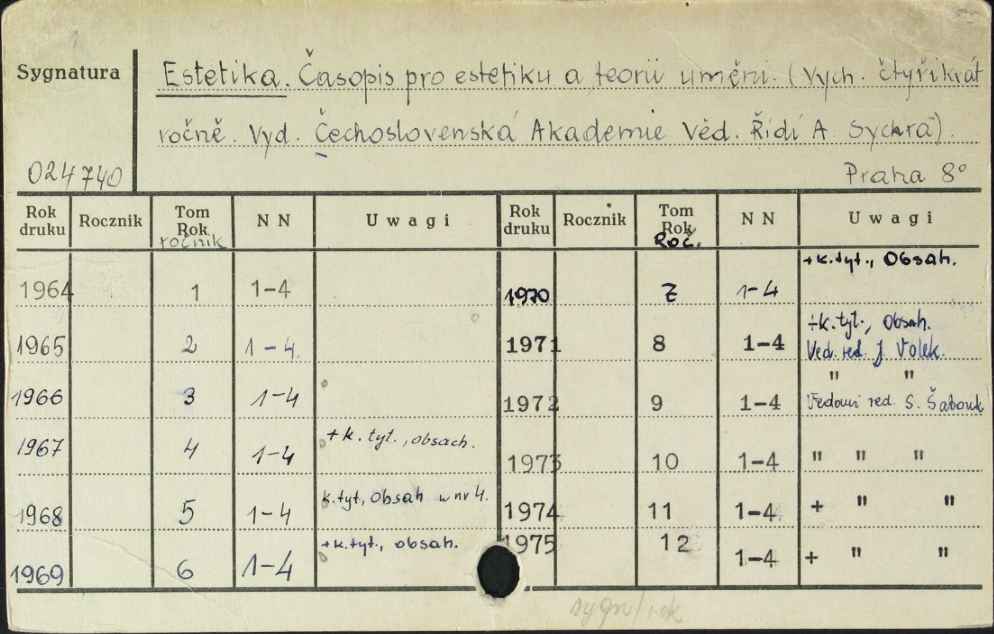 Sygnatura
Estetika. Časopis pro estetiku a teorii uměni. (Vych. čtyřikrát
ročně. Vyd. Čechoslovenská Akademie Věd. Řídí A Sychra).
024740
Praha 8°
Rok druku Rocznik Tom Rok ročnik N N Uwagi Rok druku Rocznik Tom Rok Roč. N N Uwagi
1964 1 1-4 1970 7 1-4 + k.tyt., Obsah.
1965 2 1-4. 1971 8 1-4 +k. tyt., Obsah.
Ved. red. J. Volek.
" "
1966 3 1-4 1972 9 1-4 Vedouí red. S. Šabouk
1967 4 1-4 + k. tyt., obsach. 1973 10 1-4 " " "
1968 5 1-4 k.tyt, Obsah w nr 4. 1974 11 1-4 + " "
1969 6 1-4 +k.tyt., obsah. 1975 12 1-4 + " "